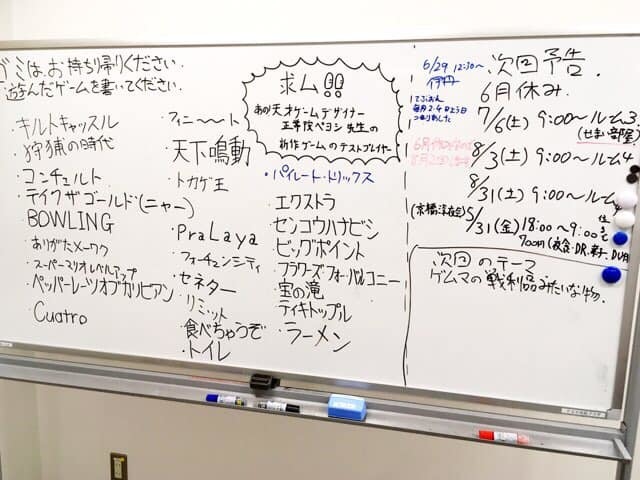 ゴミは、お持ち帰りください.
遊んだゲームを書いてください.
・キルトキャッスル
・狩猟の時代
・コンチェルト
・テイクザゴールド(ニャー)
・BOWLING
・ありがたメーワク
・スーパーマリオレベルアップ
・ペッパーレーツオブカリビアン
・Cuatro
・フィニ〜〜ト
・天下鳴動
・トカゲ王
・PraLaya
・フォーチュンシティ
・セネター
・リミット
・食べちゃうぞ
・トイレ
求ム!!
あの天才ゲームデザイナー
先生の
新作ゲームのテストプレイヤー
・パイレート・トリックス
・エクストラ
・センコウハナビシ
・ビッグポイント
・フラワーズフォーバルコニー
・宝の滝
・ティキトップル
・ラーメン
6/29 12:30〜
毎月2.4土よう日
次回予告.
6月休み.
7/6(土) 9:00〜ルーム3
(せまい部屋)
8/3(土) 9:00〜ルーム4
8/31(土) 9:00〜ルーム
5/31(金) 18:00〜9:00
次回のテーマ
ゲムマの戦利品みたいな物.